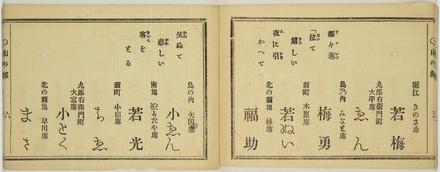 堀江 きのさ席
若梅
九郎右衛門町
大澤席
ゑん
島乃内 みなと席
梅勇
新町 木原席
若ぬい
北の新地 林席
福助
都々逸
「泣て
嬉しい
夜に引
かへて
島の内 矢田席
小ゑん
南地
若光
新町 小山席
ちゑ
九郎右衛門町
大富席
小とく
北の新地 早川席
まさ
笑ふて
悲しい
客を
とる
六